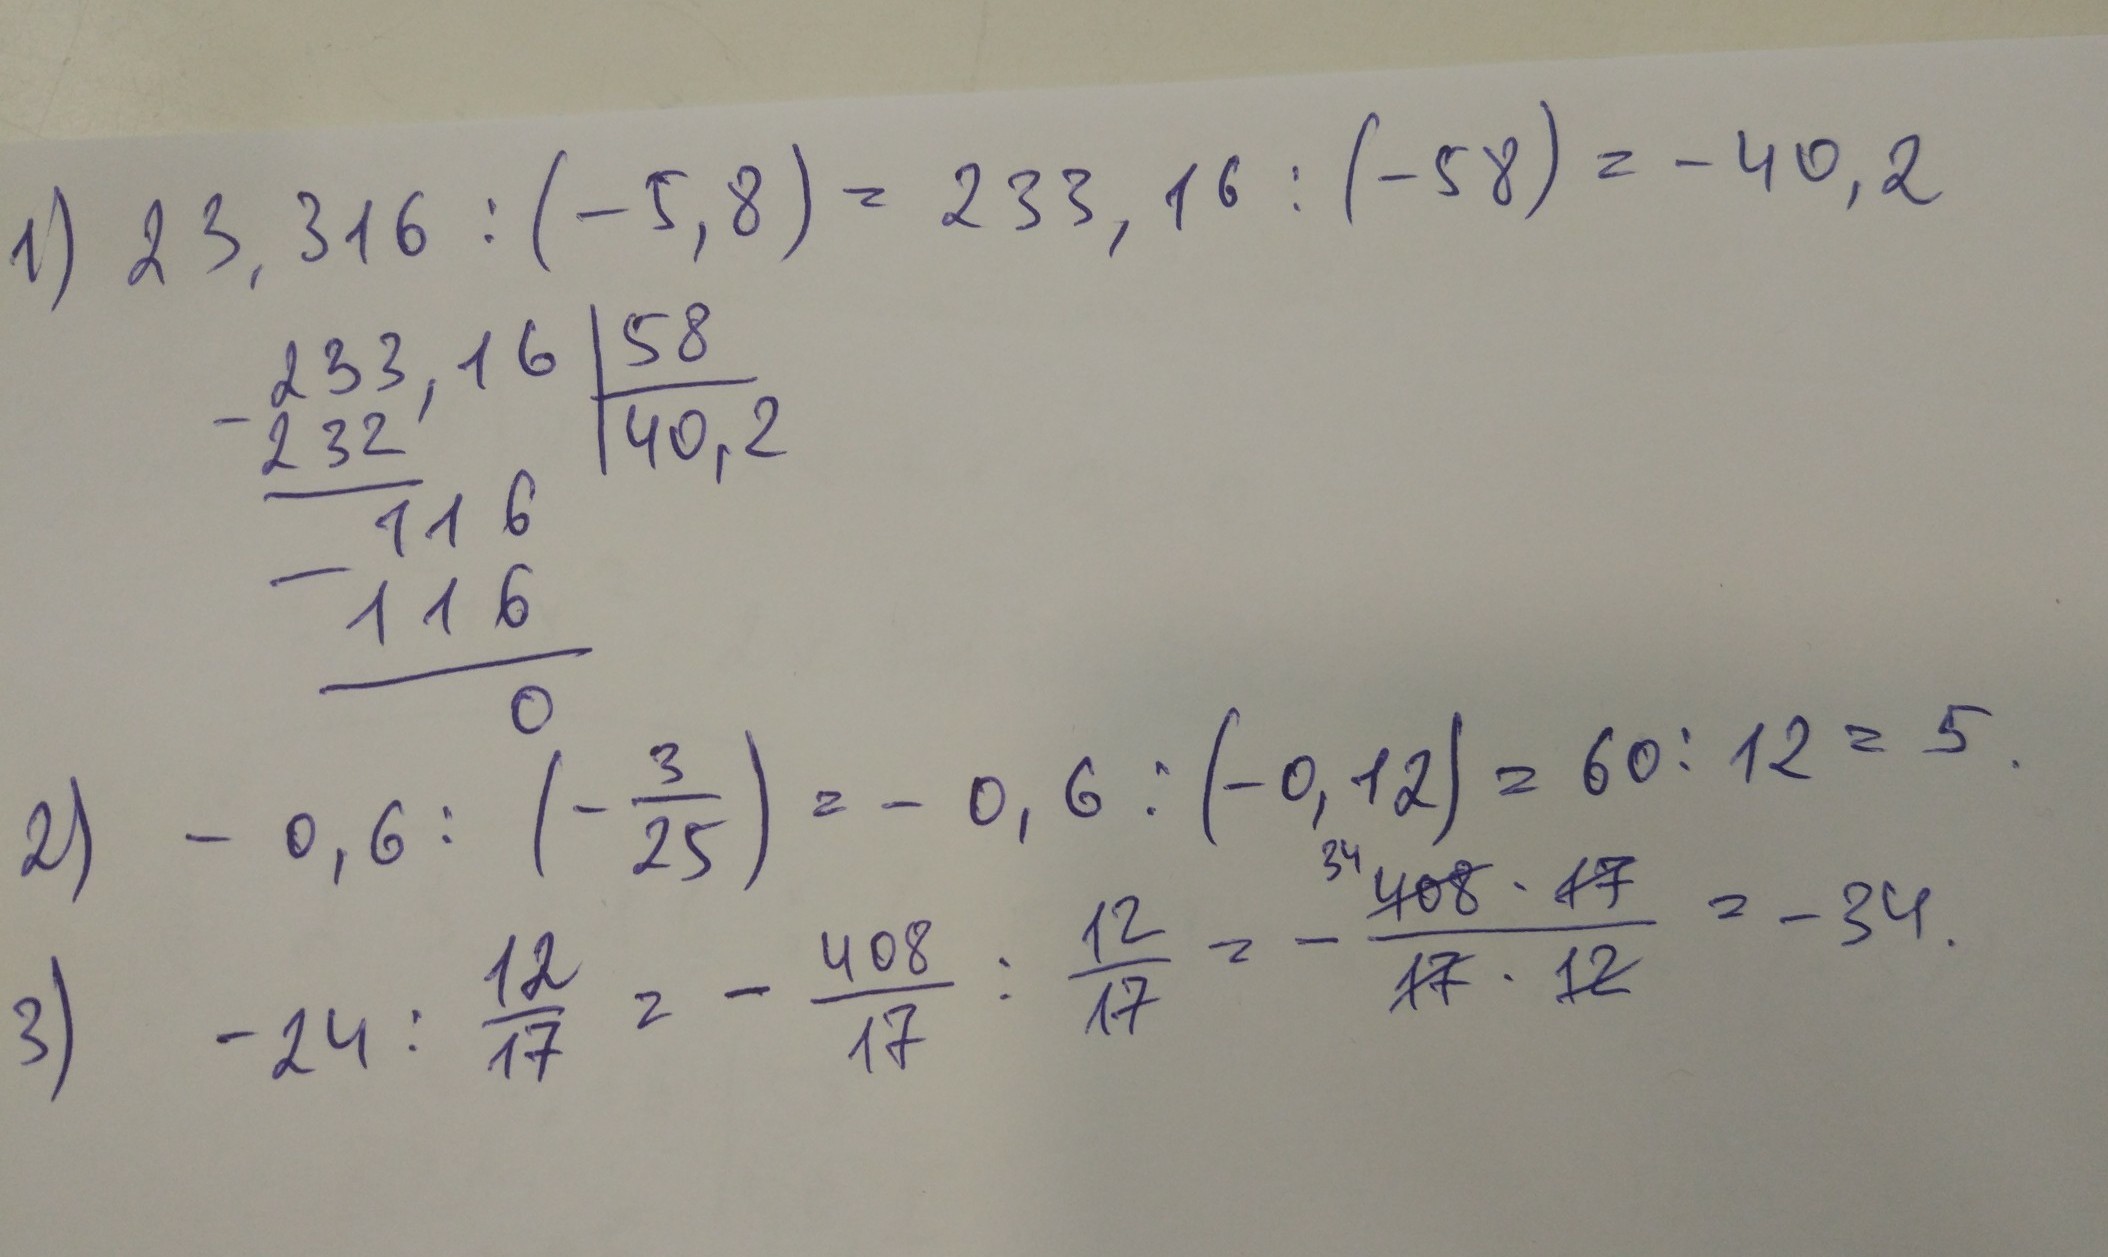 1) 23,316 : (-5,8) = 233,16 : (-58) = -40,2
-233,16 | 58
232 | 40,2
116
-116
0
2) -0,6 : (-3/25) = -0,6 : (-0,12) = 60 : 12 = 5.
3) -24 : 12/17 = -408/17 : 12/17 = -34 408·17/17·12 = -34.